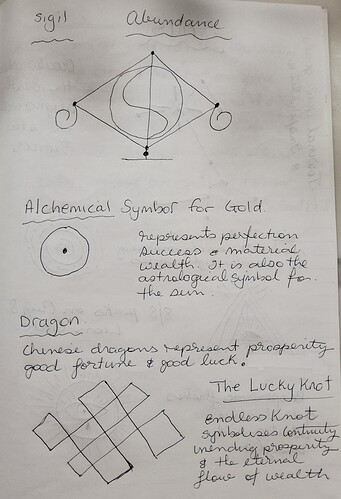 Sigil Abundance
Alchemical Symbol for Gold.
represents perfection
success & material
wealth. It is also the
astrological symbol for
the sun.
Dragon
Chinese dragons represent prosperity
good fortune & good luck.
The Lucky Knot
Endless Knot
symbolises Continuity
unending prosperity
& the eternal
flow of wealth